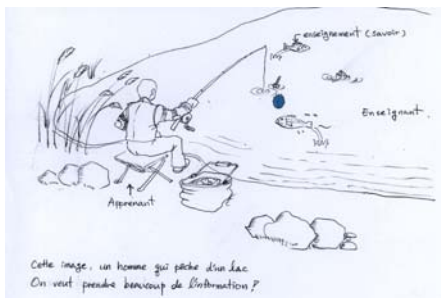 enseignement (savoir)
Enseignant
Apprenant
Cette image, un homme qui pêche d'un lac
On veut prendre beaucoup de l'information ?